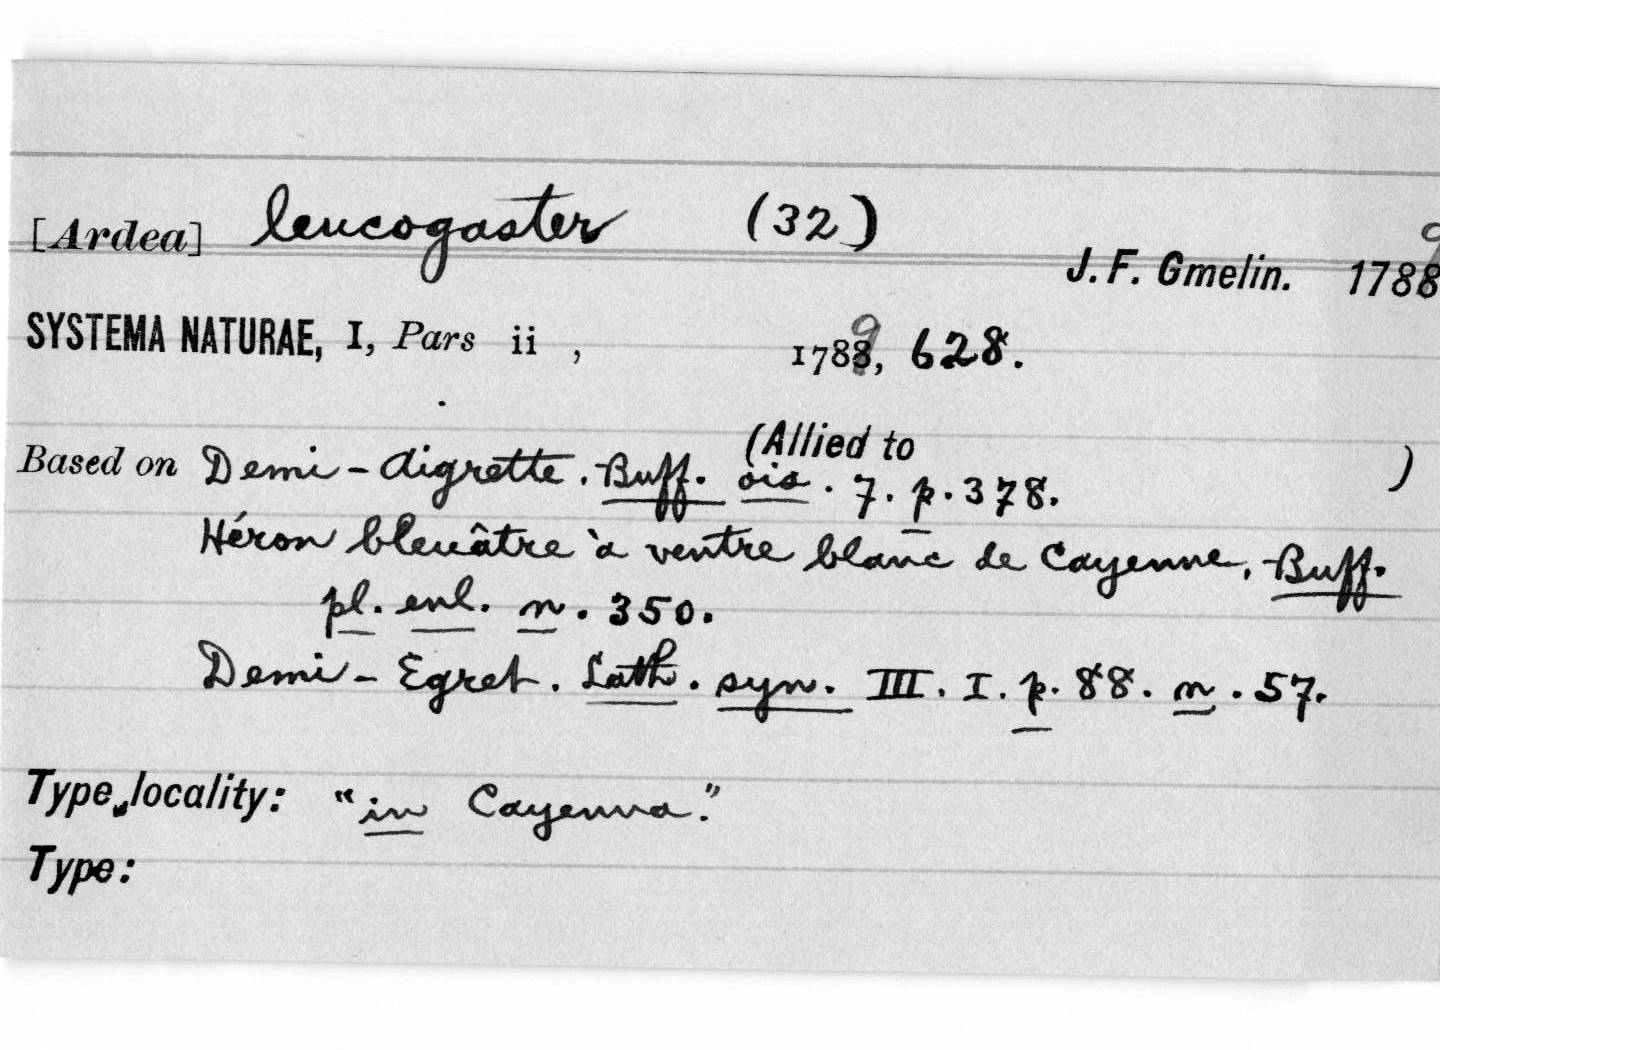 [Ardea] leucogaster (32)
J. F. Gmelin. 1788 9
SYSTEMA NATURAE, I, Pars ii , 1788 9, 628.
(Allied to )
Based on Demi-Aigrette. Buff. ois. 7. p. 378.
Héron bleuâtre à ventre blanc de Cayenne, Buff.
pl. enl. n. 350.
Demi-Egret. Lath. syn. III. I. p. 88. n. 57.
Type locality: "in Cayenna."
Type: